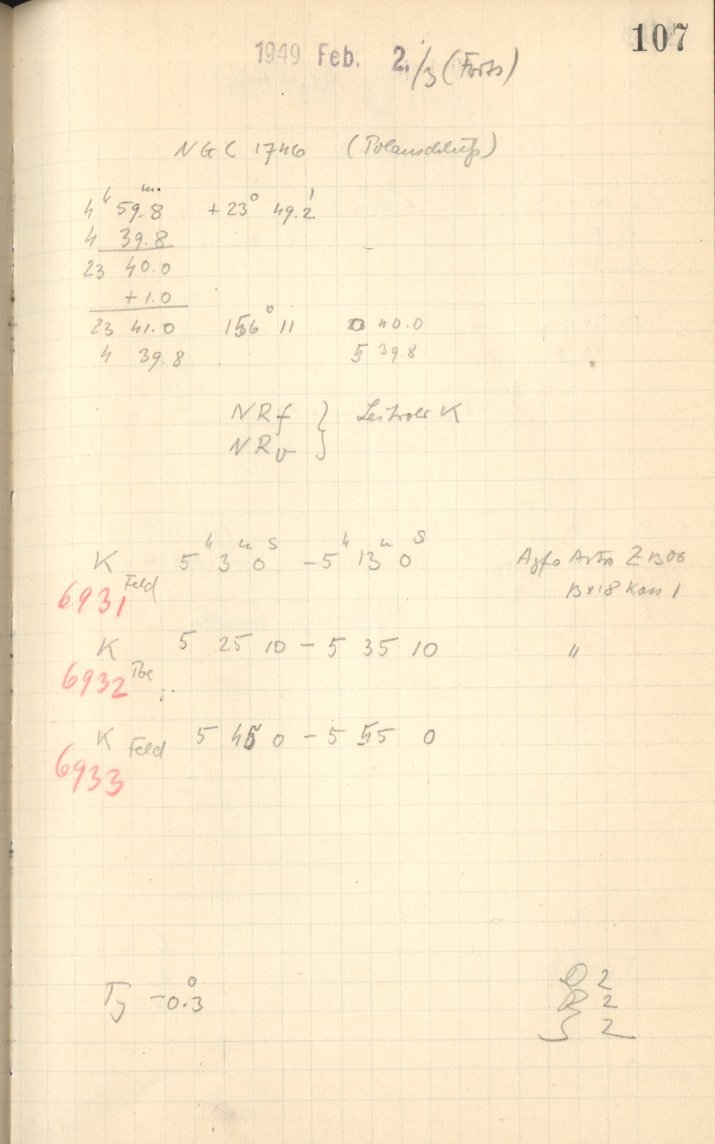 107
1949 Feb. 2./3 (Forts)
NGC 1746 (Polanschluß)
4ʰ 59.8ᵐ· + 23° 49.2'
4 39.8
23 40.0
+ 1.0
23 41.0 156° 11 0 40.0
4 39.8 5 39.8
NRf } Leitrohr K
NRv
K Feld 5ʰ 3ᵐ 0ˢ – 5ʰ 13ᵐ 0ˢ Agfa Astro Z
6931 Kass 1
K Pol 5 25 10 – 5 35 10 "
6932
K Feld 5 45 0 – 5 55 0
6933
T -0.3°
D 2
R 2
S 2